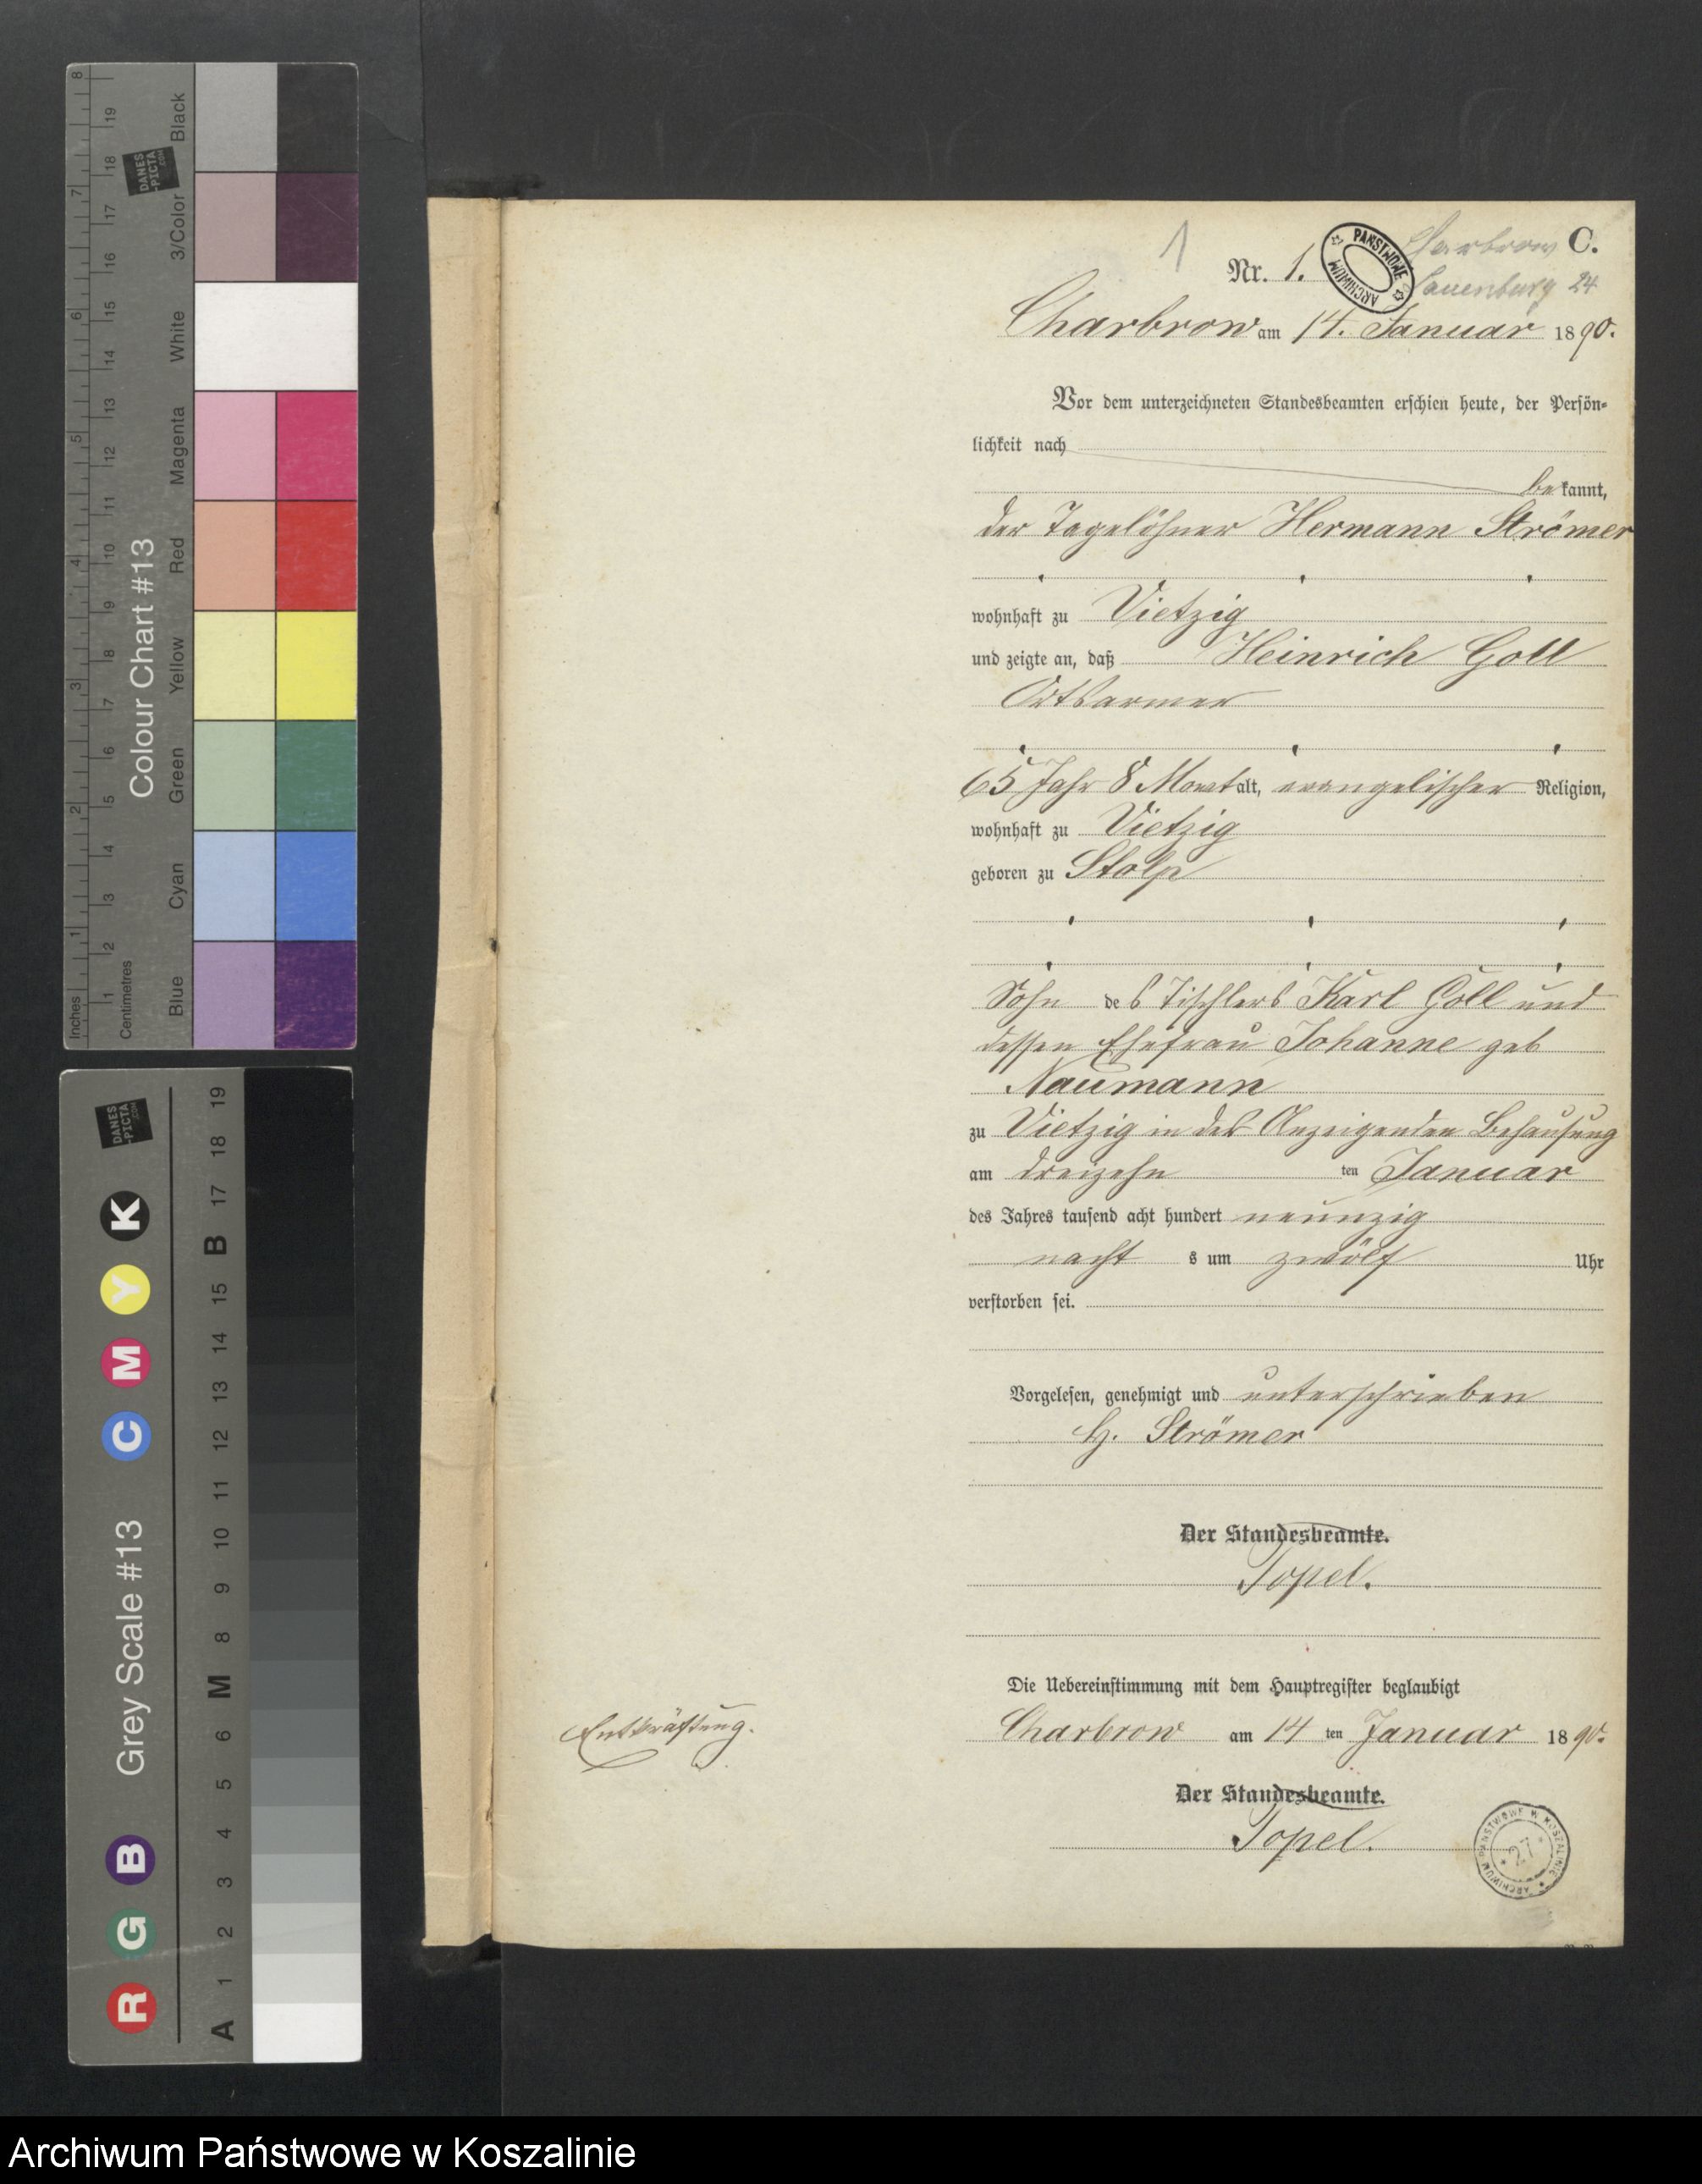 1
Nr. 1.
PAŃSTWOWE ARCHIWUM
Charbrow C.
Lauenburg 24
Charbrow am 14. Januar 1890.
Vor dem unterzeichneten Standesbeamten erschien heute, der Persön-
lichkeit nach
bekannt,
der Tagelöhner Hermann Strömer
wohnhaft zu Vietzig
und zeigte an, daß Heinrich Goll
Ortsarmer
65 Jahr 8 Monat alt, evangelischer Religion,
wohnhaft zu Vietzig
geboren zu Stolp
Sohn des Tischlers Karl Goll und
dessen Ehefrau Johanne geb
Naumann
zu Vietzig in des Anzeigenden Behausung
am dreizehn ten Januar
des Jahres tausend acht hundert neunzig
nacht s um zwölf Uhr
verstorben sei.
Vorgelesen, genehmigt und unterschrieben
H. Strömer
Der Standesbeamte.
Topel.
Die Uebereinstimmung mit dem Hauptregister beglaubigt
Charbrow am 14 ten Januar 1890.
Der Standesbeamte.
Topel.
Entkräftung.
ARCHIWUM PAŃSTWOWE W KOSZALINIE
27
Colour Chart #13
DANES
-PICTA
.COM
Inches
1 2 3 4 5 6 7 8
Centimetres
1 2 3 4 5 6 7 8 9 10 11 12 13 14 15 16 17 18 19
Blue Cyan Green Yellow Red Magenta White 3/Color Black
Grey Scale #13
DANES
-PICTA
.COM
R G B C M Y K
A 1 2 3 4 5 6 M 8 9 10 11 12 13 14 15 B 17 18 19
Archiwum Państwowe w Koszalinie